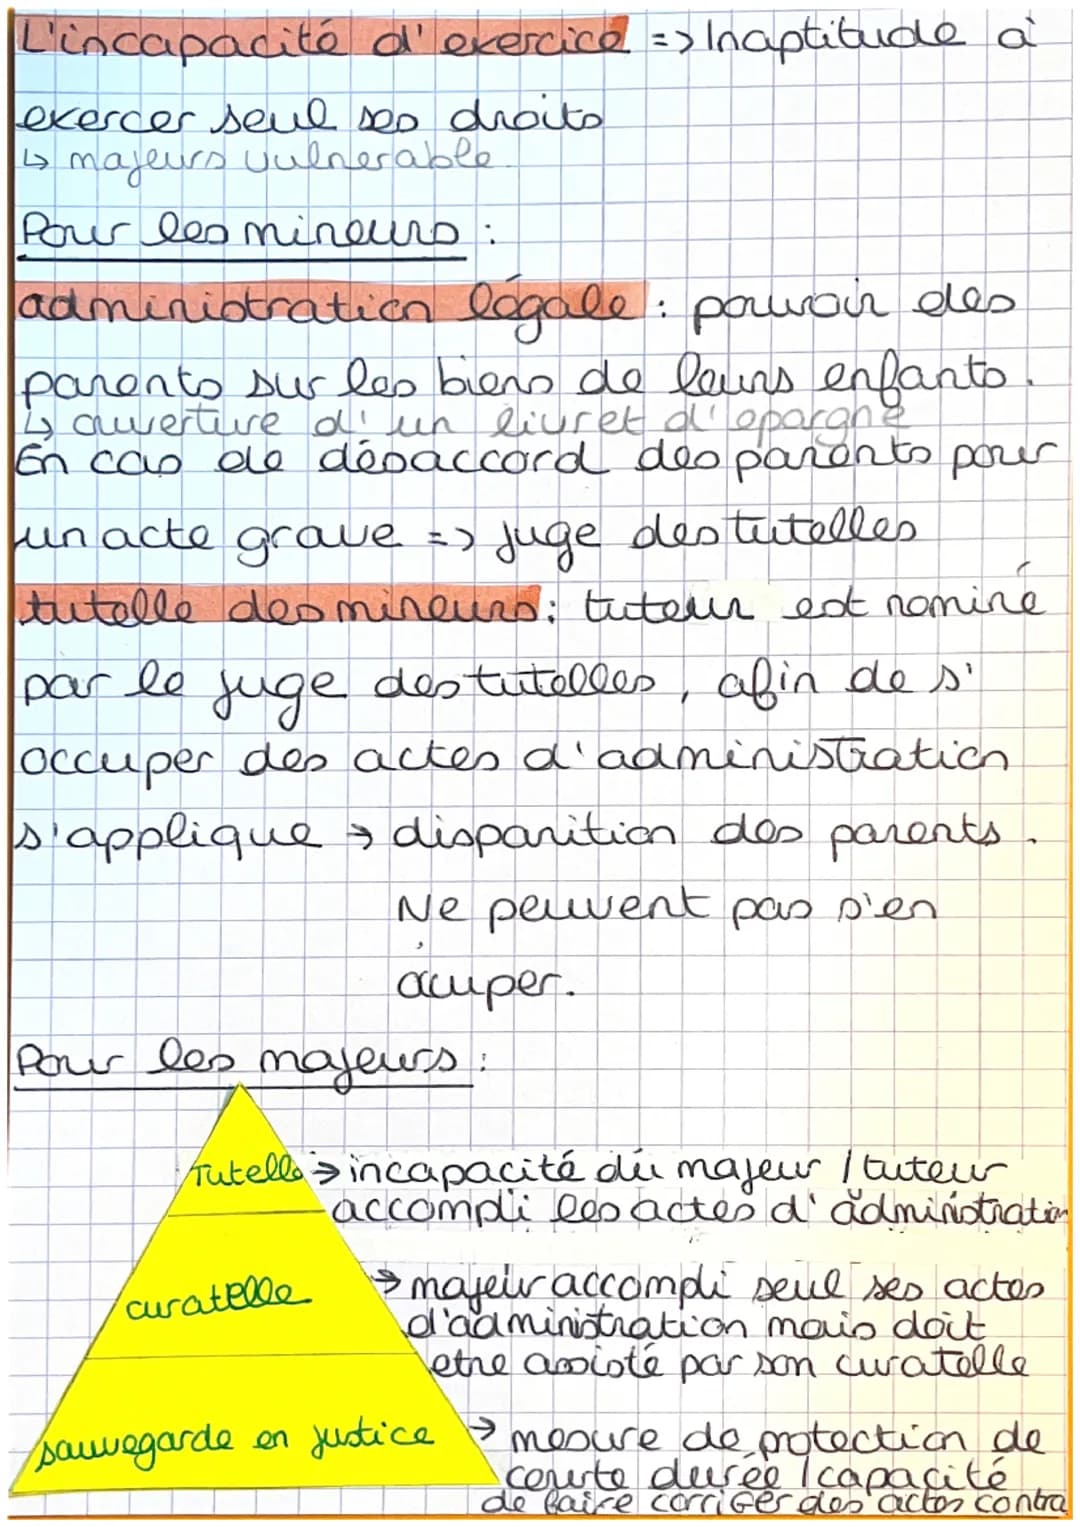 L'incapacité d'exercice => Inaptitude à
exercer seul ses droits
↳ majeurs vulnerable.
Pour les mineurs :
administration légale : pouvoir des
parents sur les biens de leurs enfants.
↳ ouverture d'un livret d'épargne
En cas de désaccord des parents pour
un acte grave => juge des tutelles
tutelle des mineurs : tuteur est nommé
par le juge des tutelles, afin de s'
occuper des actes d'administration
s'applique → disparition des parents.
Ne peuvent pas s'en
ocuper.
Pour les majeurs :
Tutelle → incapacité du majeur / tuteur
accompli les actes d'administration
curatelle → majeur accompli seul ses actes
d'administration mais doit
etre assisté par son curatelle
sauvegarde en justice → mesure de protection de
courte durée / capacité
de faire corriger des actes contra